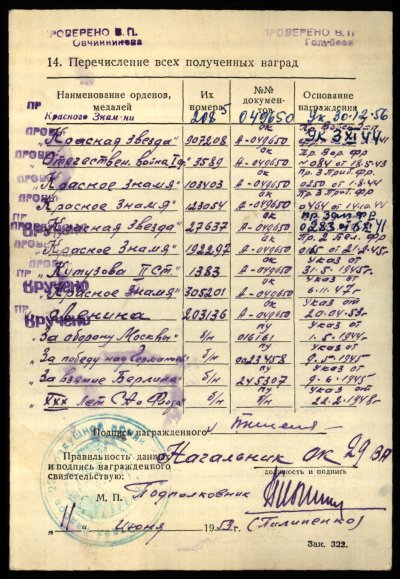 ПРОВЕРЕНО В.П.
Овчинникова
ПРОВЕРЕНО В.П.
Голубева
14. Перечисление всех полученных наград
Наименование орденов, медалей
Их номера
№№ документов
Основание награждения
Красного Знамени 2085 049650 Ук. 30-12-56
„Красная Звезда" 907208 ОК А-049650
„Отечествен. война 3589 ОК А-049650 084 от 18.5.43
„Красное Знамя" 103403 ОК А-049650 0250 от 1.8.44
„Красное Знамя" 123054 ОК А-049650
„Красная Звезда" 27637 ОК А-049650
„Красное Знамя" 192297 ОК А-049650
„Кутузова II Ст" 1383 ОК А-049650 Указ от 31.5.1945г.
„Красное Знамя" 305201 ОК А-049650 Указ от 6.11.47г.
„Ленина 203136 ОК А-049650 Указ от 20.04.53г.
„За оборону Москвы" б/н ПУ 016161 Указ от 1.5.1944г.
„За победу над Германией б/н ПУ 0023458 Указ от 9.5.1945г.
„За взятие Берлина" б/н ПУ 245307 Указ от 9.6.1945г.
„XXX лет СА и Флота" б/н Указ от 22.2.1948г.
Вручено
Вручено
Подпись награжденного
Правильность данных и подпись награжденного свидетельствую:
Начальник ОК 29 ВА
должность и подпись
М. П. Подполковник
„11" Июня 1953г. (Пилипенко)
Зак. 322.